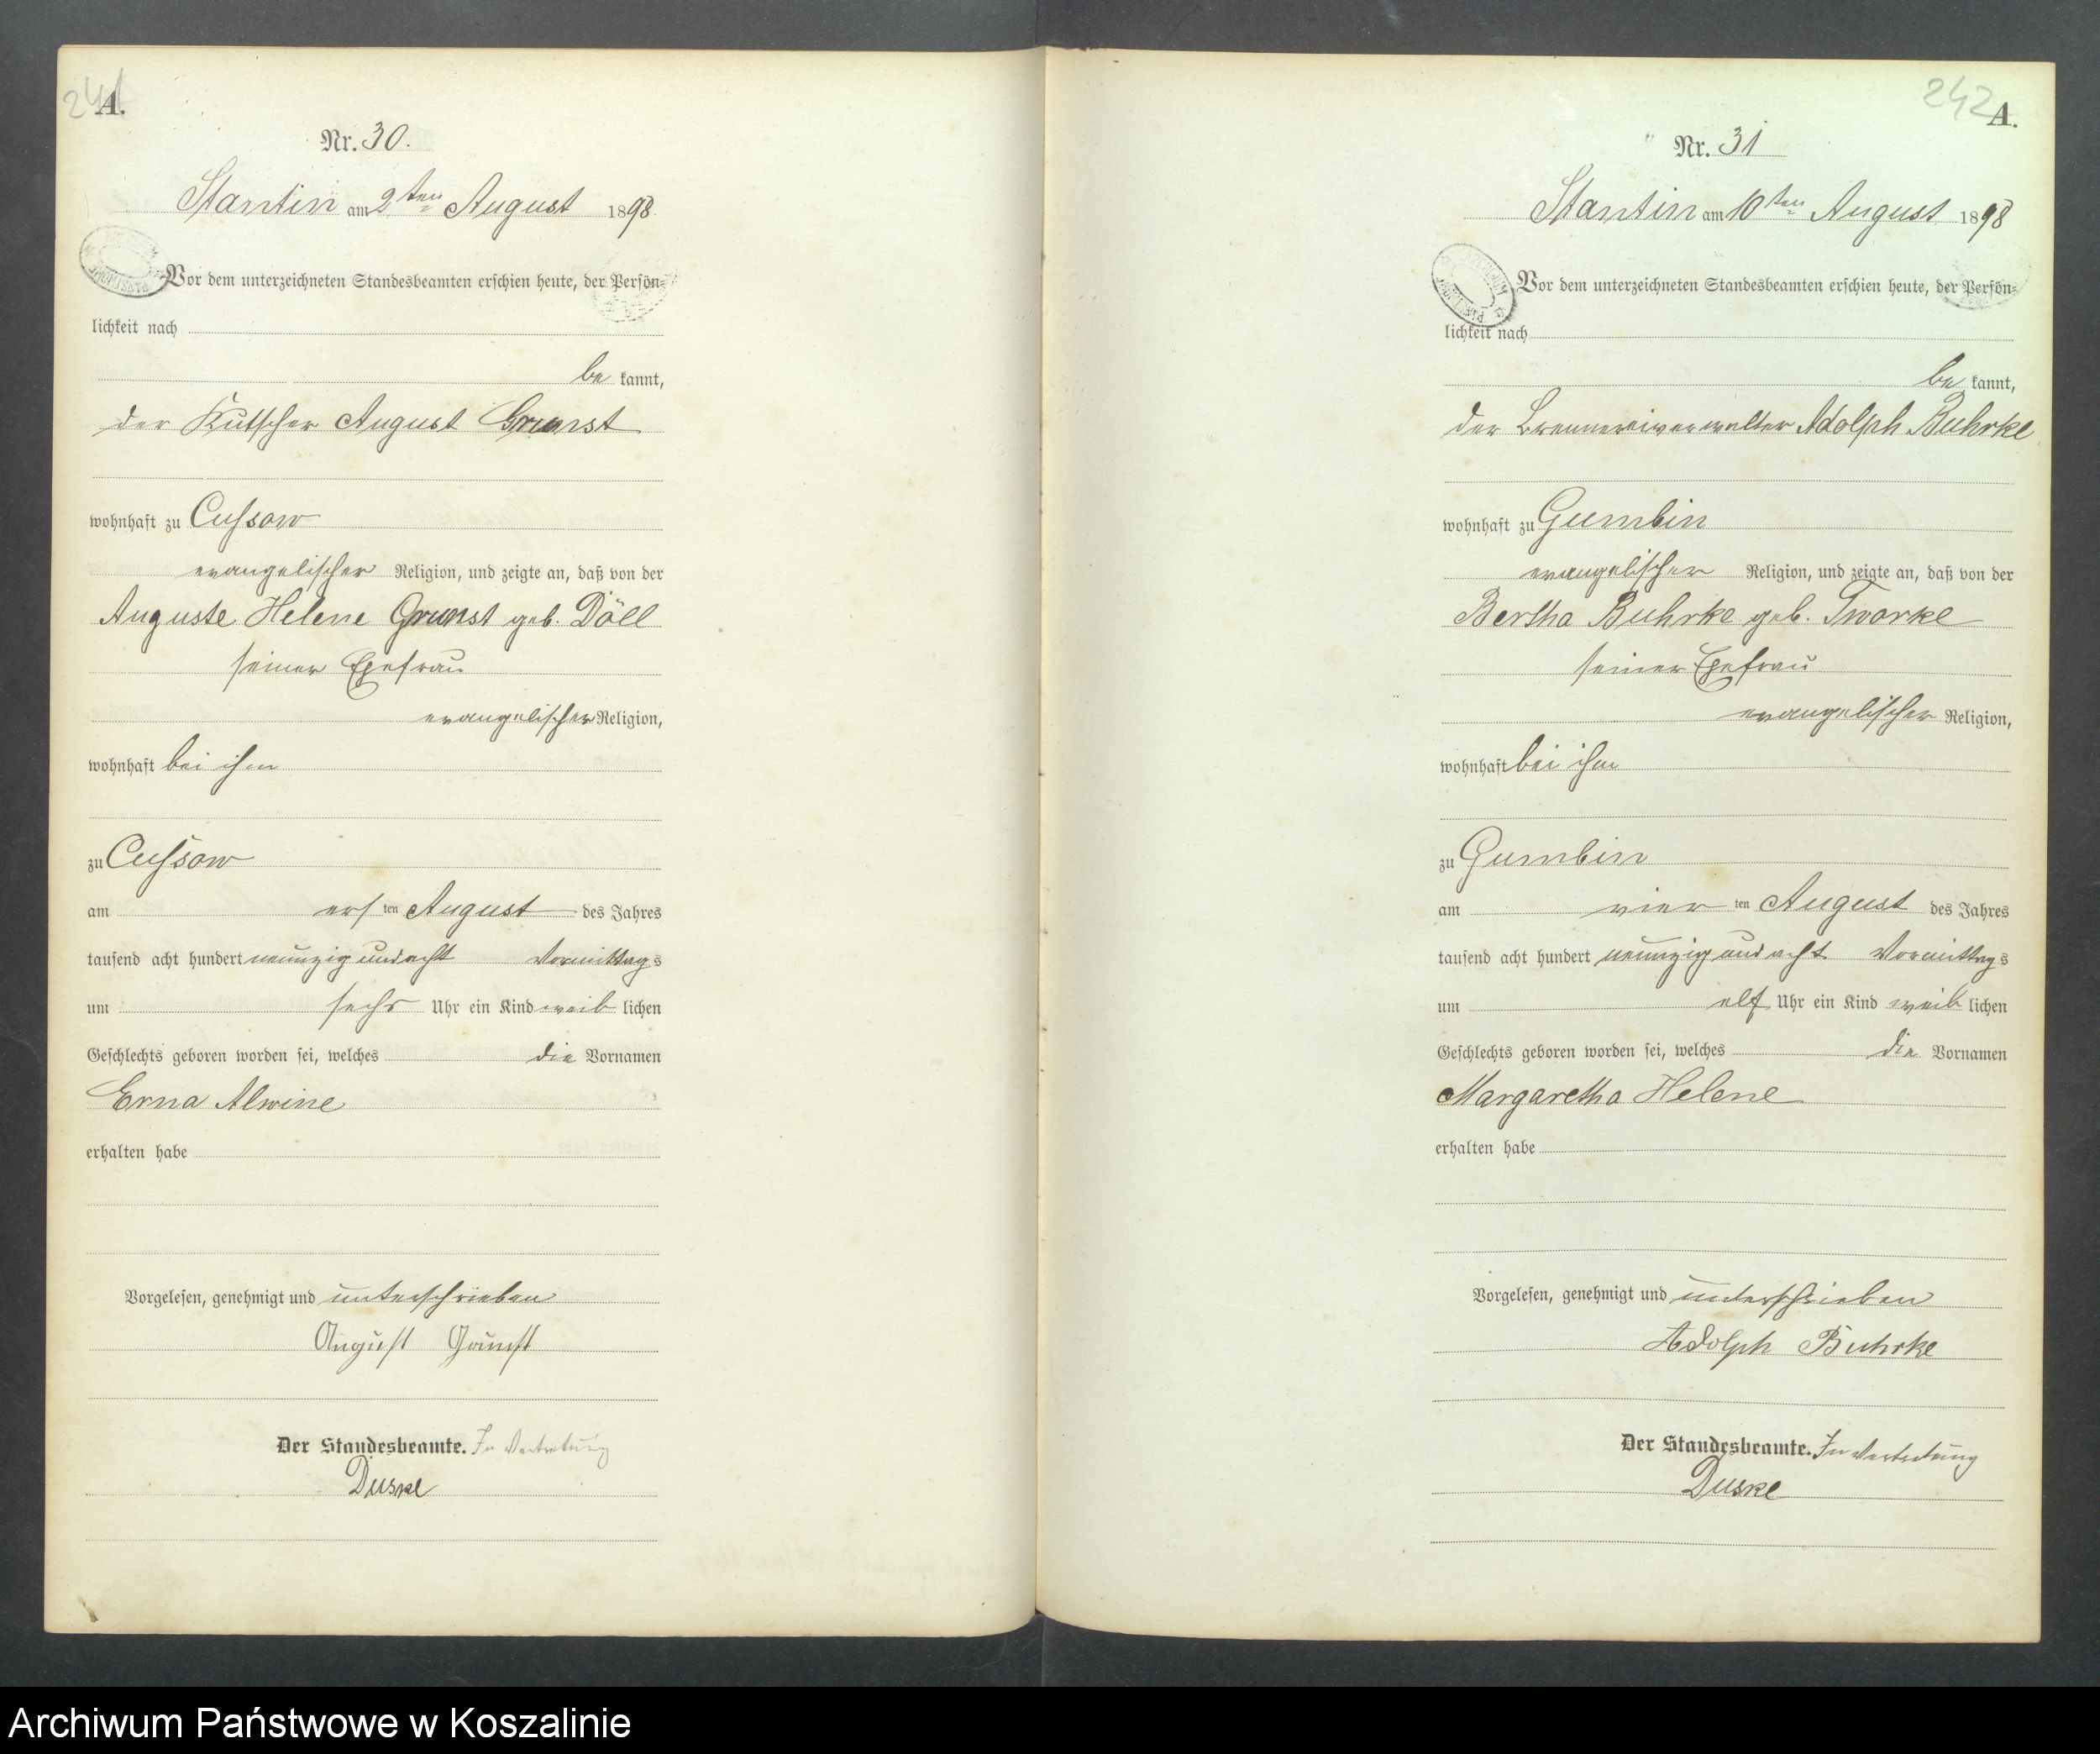 241
A.
Nr. 30.
Stantin am 2ten August 1898
Vor dem unterzeichneten Standesbeamten erschien heute, der Persön-
lichkeit nach
be kannt,
der Kutscher August Grunst
wohnhaft zu Cussow
evangelischer Religion, und zeigte an, daß von der
Auguste Helene Grunst geb. Döll
seiner Ehefrau
evangelischer Religion,
wohnhaft bei ihm
zu Cussow
am ersten August des Jahres
tausend acht hundert neunzig und acht Vormittags
um sechs Uhr ein Kind weiblichen
Geschlechts geboren worden sei, welches die Vornamen
Erna Alwine
erhalten habe
Vorgelesen, genehmigt und unterschrieben
August Grunst
Der Standesbeamte. In Vertretung
Duske
242
A.
Nr. 31
Stantin am 10ten August 1898
Vor dem unterzeichneten Standesbeamten erschien heute, der Persön-
lichkeit nach
be kannt,
der Brennereiverwalter Adolph Buhrke
wohnhaft zu Gumbin
evangelischer Religion, und zeigte an, daß von der
Bertha Buhrke geb. Tworke
seiner Ehefrau
evangelischer Religion,
wohnhaft bei ihm
zu Gumbin
am vierten August des Jahres
tausend acht hundert neunzig und acht Vormittags
um elf Uhr ein Kind weiblichen
Geschlechts geboren worden sei, welches die Vornamen
Margaretha Helene
erhalten habe
Vorgelesen, genehmigt und unterschrieben
Adolph Buhrke
Der Standesbeamte. In Vertretung
Duske
Archiwum Państwowe w Koszalinie